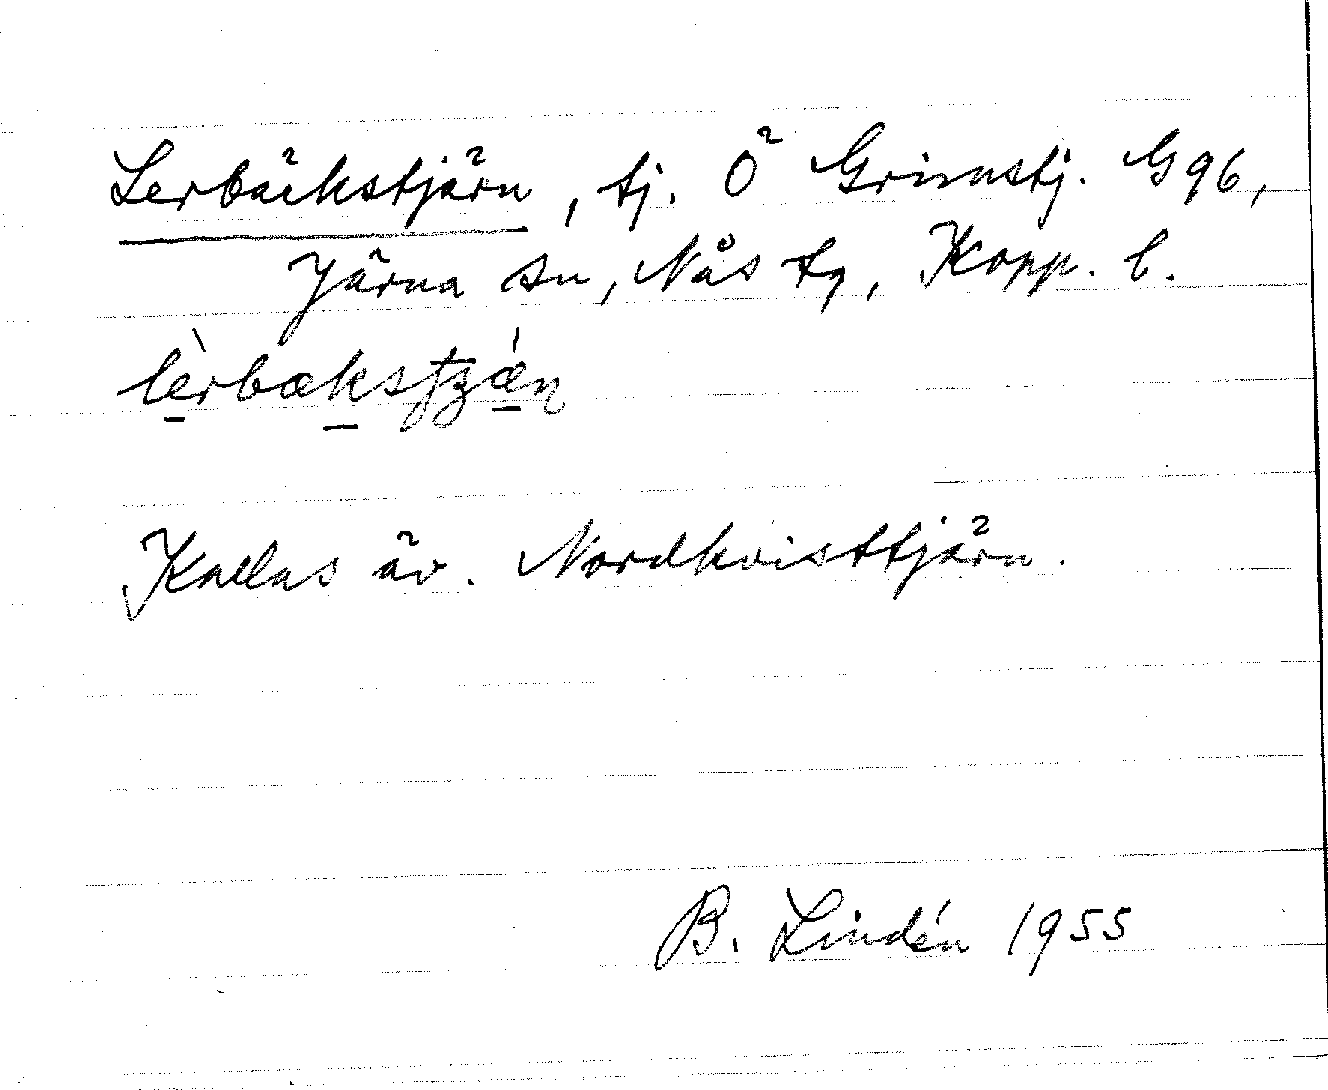 Lerbäckstjärn, tj. Ö Grinnstj. G96,
Järna sn, Nås tg, Kopp. l.
Kallas äv. Nordkvisttjärn.
B. Lindén 1955